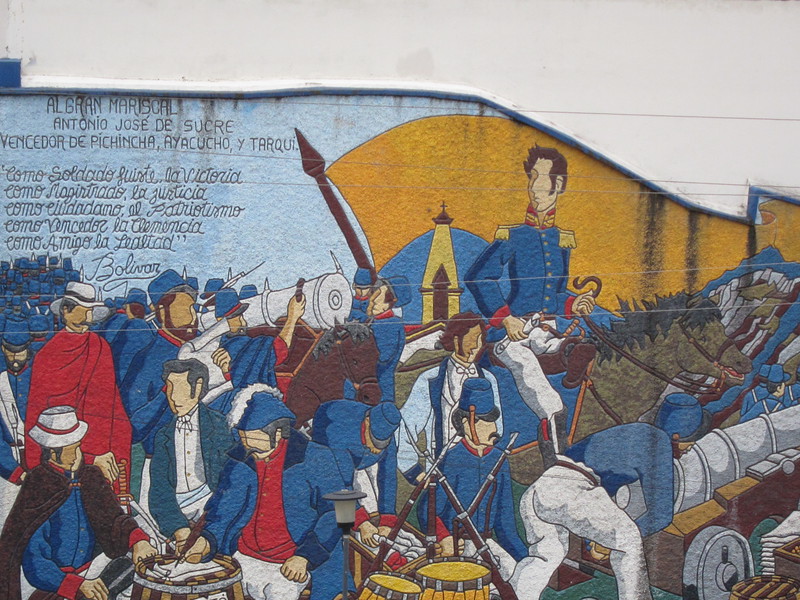 AL GRAN MARISCAL
ANTONIO JOSÉ DE SUCRE
VENCEDOR DE PICHINCHA, AYACUCHO, Y TARQUI.
"Como Soldado fuiste, la Victoria
como Magistrado, la justicia
como ciudadano, el Patriotismo
como Vencedor la Clemencia
como Amigo la Lealtad"
Bolivar